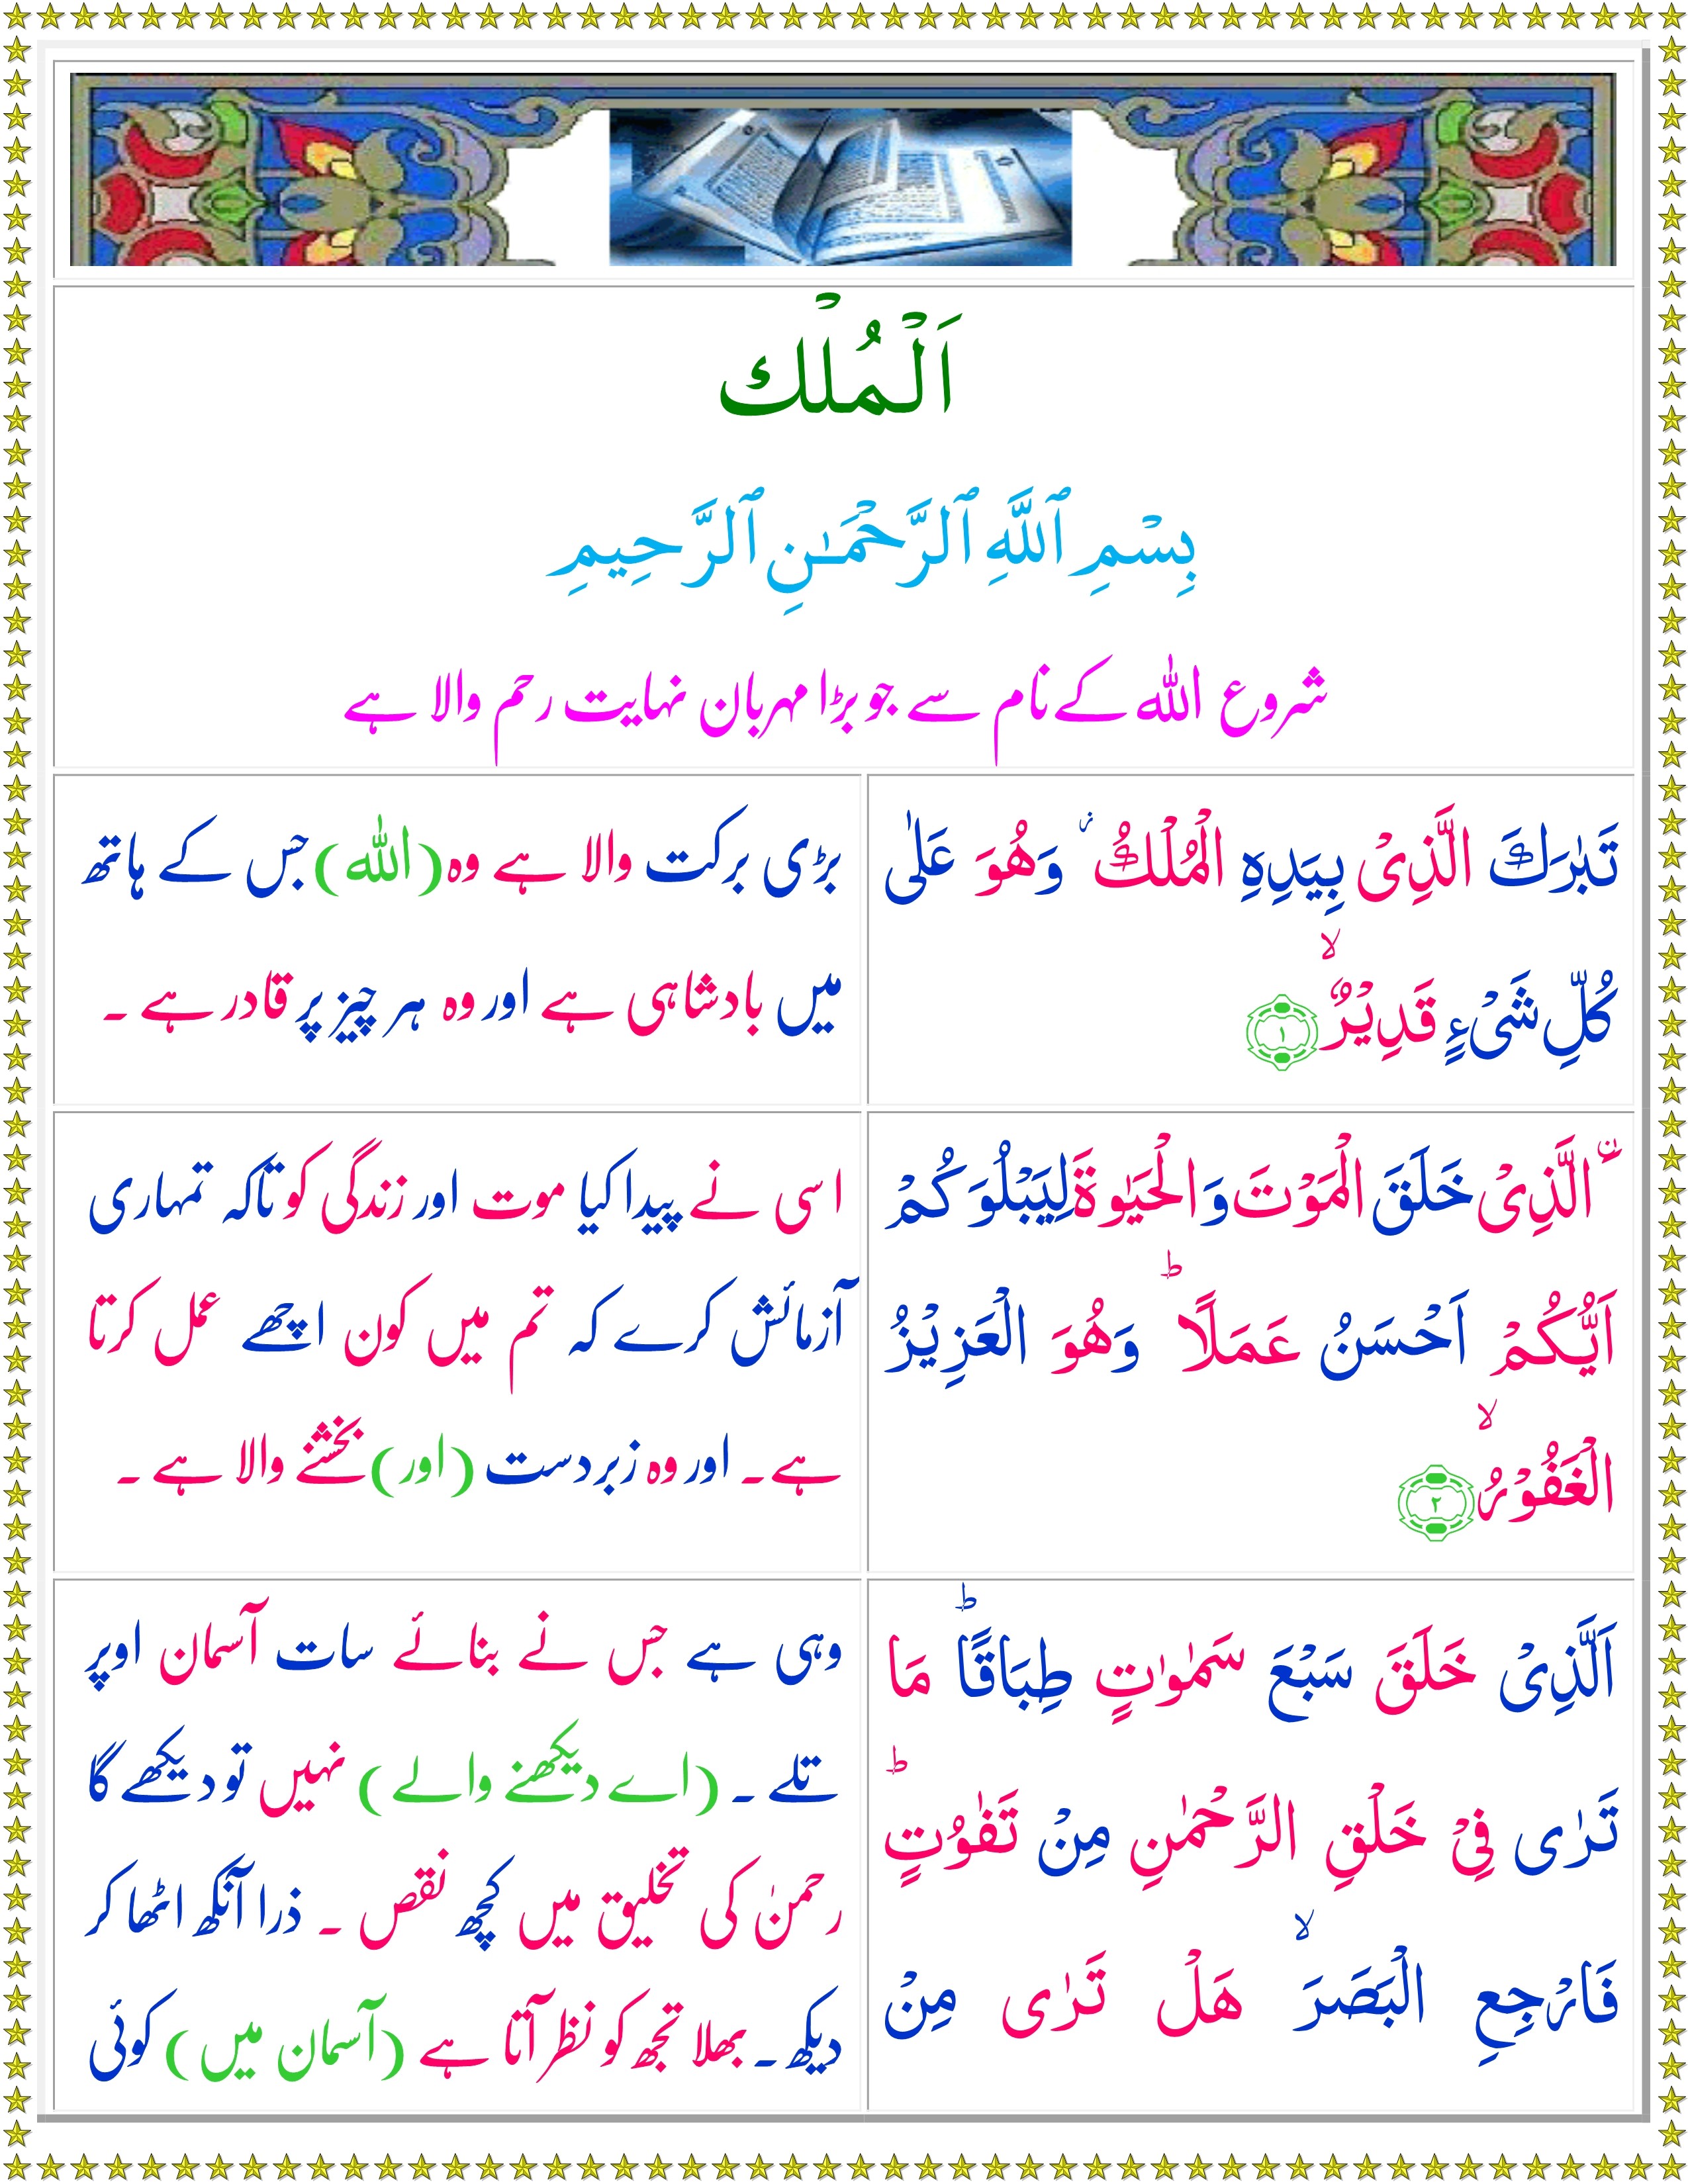 اَلْمُلْك
بِسْمِ ٱللَّهِ ٱلرَّحْمَـٰنِ ٱلرَّحِيمِ
شروع اللہ کے نام سے جو بڑا مہربان نہایت رحم والا ہے
تَبٰرَكَ الَّذِیْ بِیَدِہِ الْمُلْكُ ۡ وَھُوَ عَلٰی
كُلِّ شَیْءٍ قَدِیْرُۨ ۙ ﴿۱﴾
بڑی برکت والا ہے وہ (اللہ) جس کے ہاتھ
میں بادشاہی ہے اور وہ ہر چیز پر قادر ہے ۔
ۨالَّذِیْ خَلَقَ الْمَوْتَ وَالْحَیٰوةَ لِیَبْلُوَكُمْ
اَیُّكُمْ اَحْسَنُ عَمَلًا ؕ وَھُوَ الْعَزِیْزُ
الْغَفُوْرُ ۙ ﴿۲﴾
اسی نے پیدا کیا موت اور زندگی کو تاکہ تمہاری
آزمائش کرے کہ تم میں کون اچھے عمل کرتا
ہے ۔ اور وہ زبردست (اور) بخشنے والا ہے ۔
اَلَّذِیْ خَلَقَ سَبْعَ سَمٰوٰتٍ طِبَاقًا ؕ مَا
تَرٰی فِیْ خَلْقِ الرَّحْمٰنِ مِنْ تَفٰوُتٍ ؕ
فَارْجِعِ الْبَصَرَ ۙ ھَلْ تَرٰی مِنْ
وہی ہے جس نے بنائے سات آسمان اوپر
تلے ۔ (اے دیکھنے والے) نہیں تو دیکھے گا
رحمنٰ کی تخلیق میں کچھ نقص ۔ ذرا آنکھ اٹھا کر
دیکھ ۔ بھلا تجھ کو نظر آتا ہے (آسمان میں) کوئی